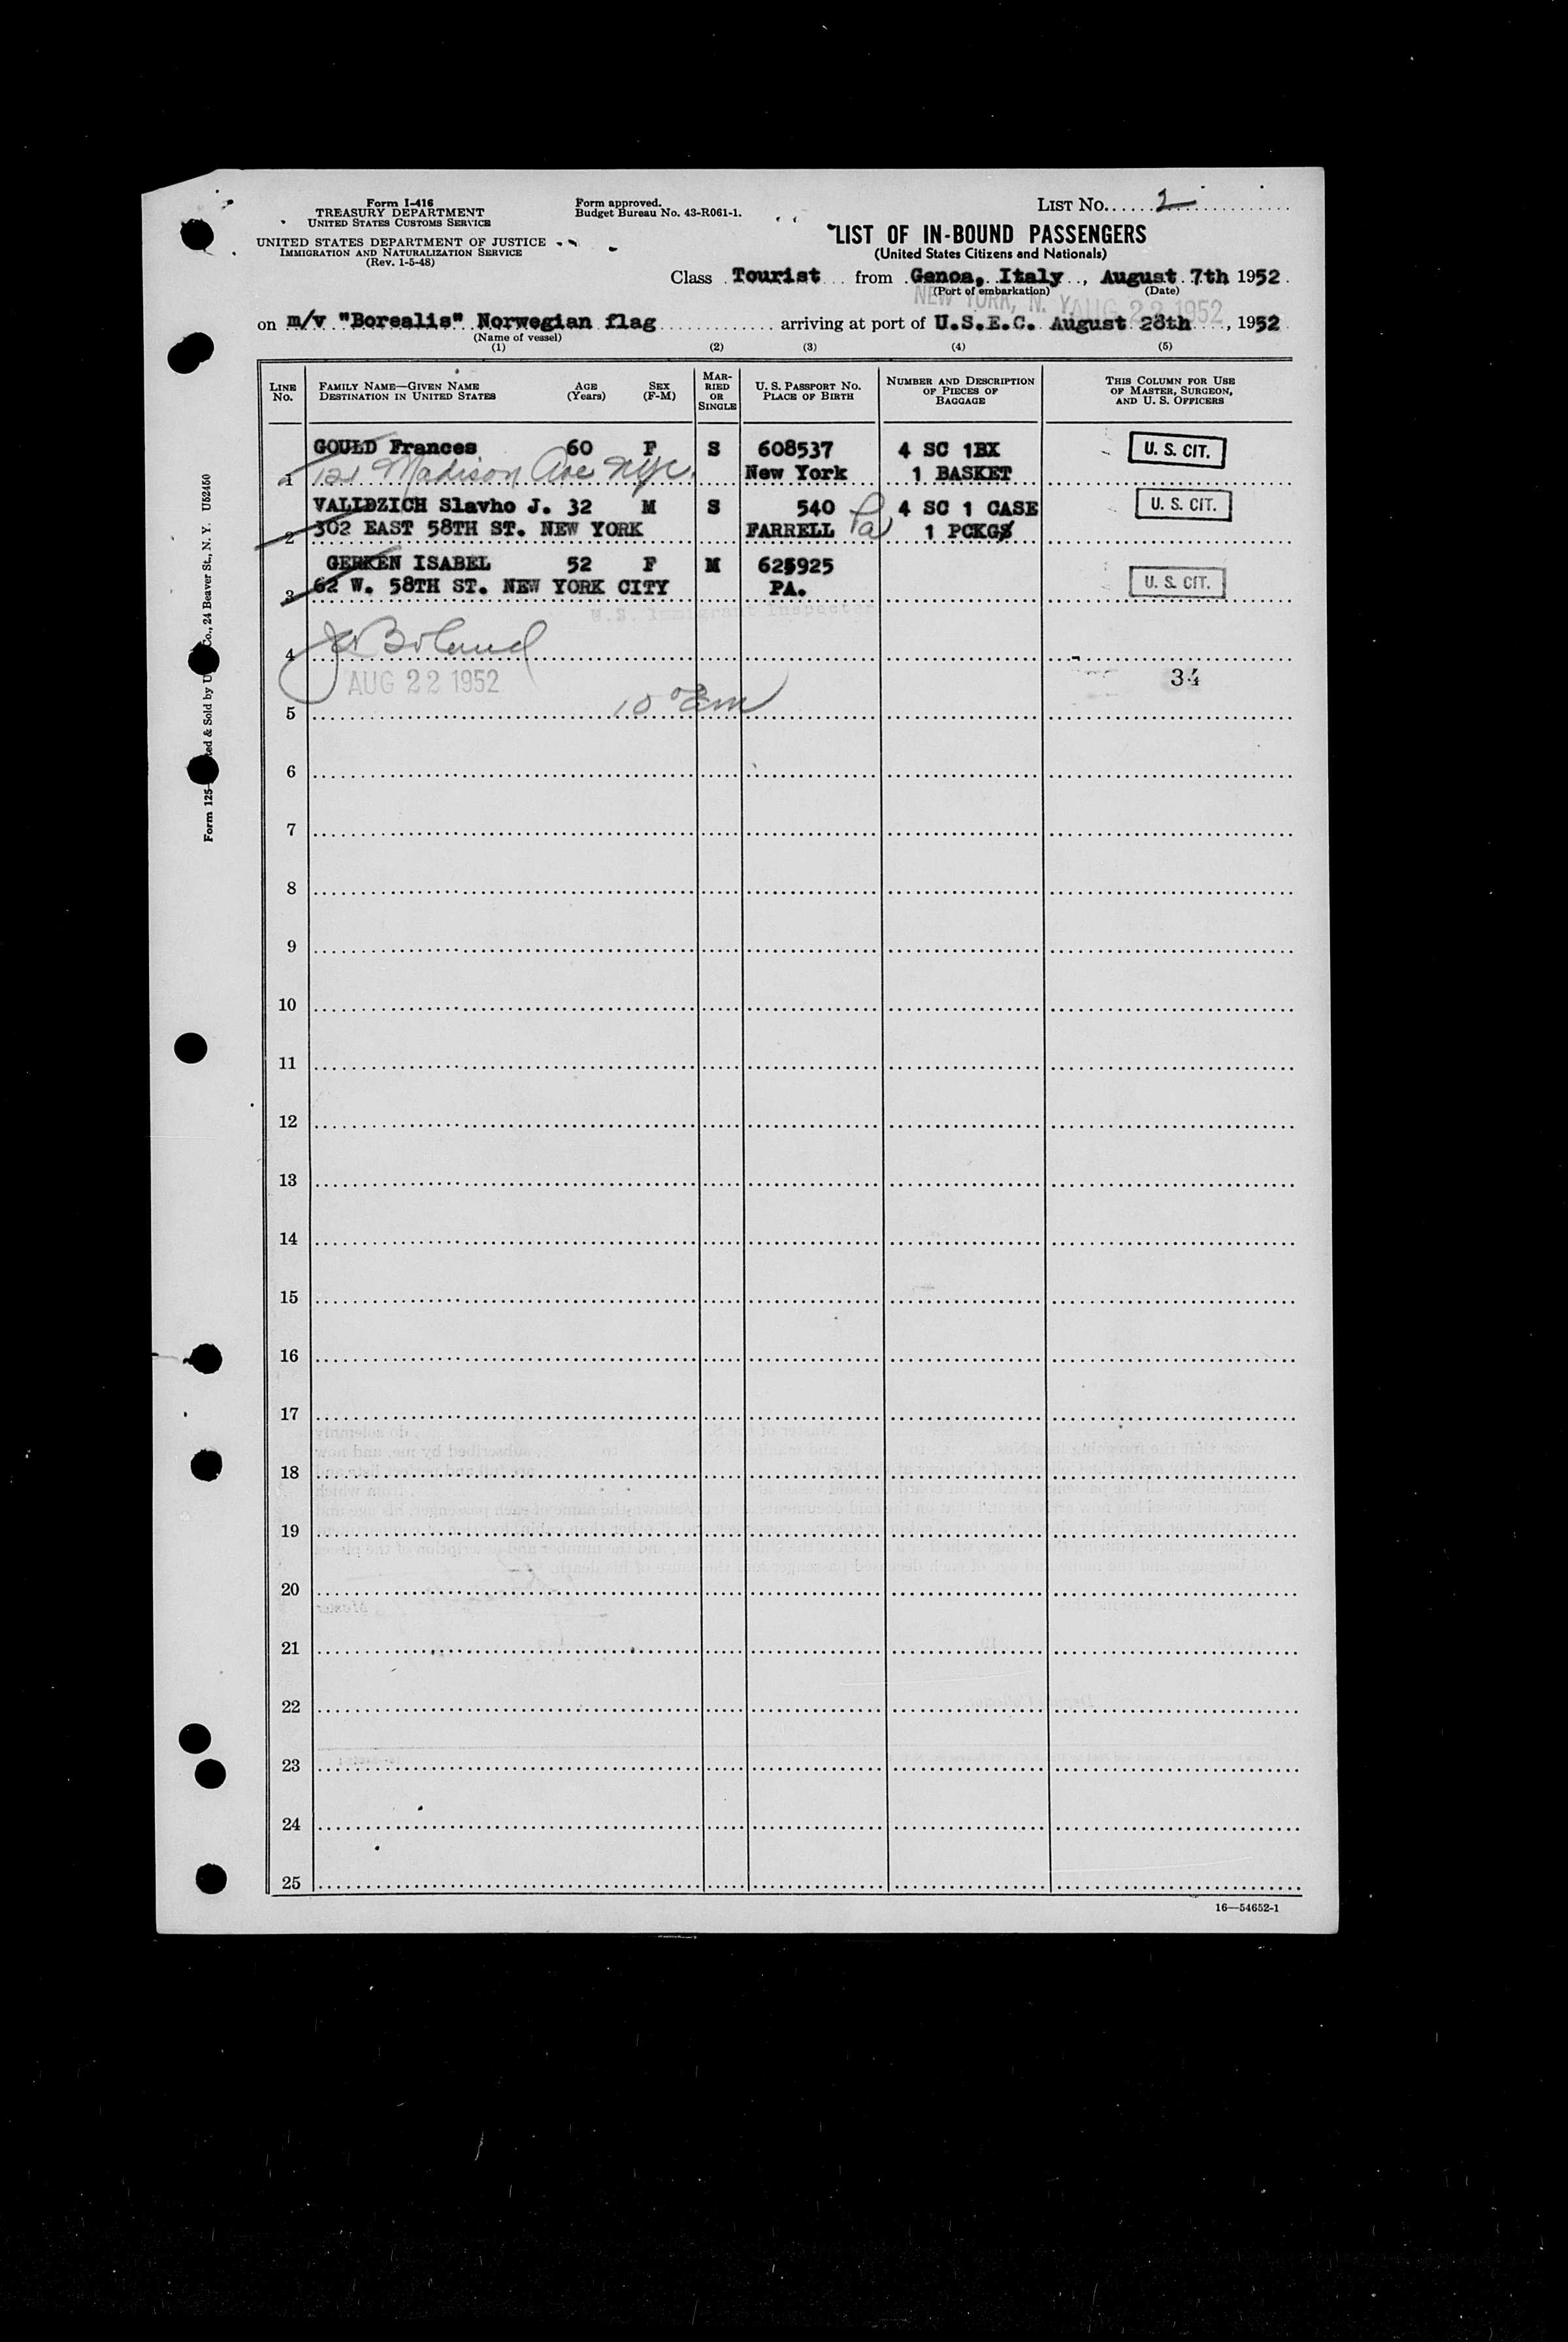 Form I-416
TREASURY DEPARTMENT
UNITED STATES CUSTOMS SERVICE
UNITED STATES DEPARTMENT OF JUSTICE
IMMIGRATION AND NATURALIZATION SERVICE
(Rev. 1-5-48)
Form approved.
Budget Bureau No. 43-R061-1.
LIST No. 2
LIST OF IN-BOUND PASSENGERS
(United States Citizens and Nationals)
Class Tourist from Genoa, Italy, August 7th 1952
(Port of embarkation) (Date)
NEW YORK, N. Y. AUG 22 1952
on m/v "Borealis" Norwegian flag arriving at port of U.S.E.C. August 28th, 1952
(Name of vessel)
(1) (2) (3) (4) (5)
LINE No. FAMILY NAME—GIVEN NAME DESTINATION IN UNITED STATES AGE (Years) SEX (F-M) MARRIED OR SINGLE U. S. PASSPORT No. PLACE OF BIRTH NUMBER AND DESCRIPTION OF PIECES OF BAGGAGE THIS COLUMN FOR USE OF MASTER, SURGEON, AND U. S. OFFICERS
GOULD Frances 60 F S 608537 4 SC 1BX U. S. CIT.
1 121 Madison Ave NYC. New York 1 BASKET
VALIDZICH Slavho J. 32 M S 540 4 SC 1 CASE U. S. CIT.
2 302 EAST 58TH ST. NEW YORK FARRELL Pa 1 PCKG
GERKEN ISABEL 52 F M 625925 U. S. CIT.
3 62 W. 58TH ST. NEW YORK CITY PA.
U.S. Immigrant Inspector
4 Boland
AUG 22 1952 34
5 10
6
7
8
9
10
11
12
13
14
15
16
17
18
19
20
21
22
23
24
25
16—54652-1
Form 125 Co., 24 Beaver St., N. Y. U52450